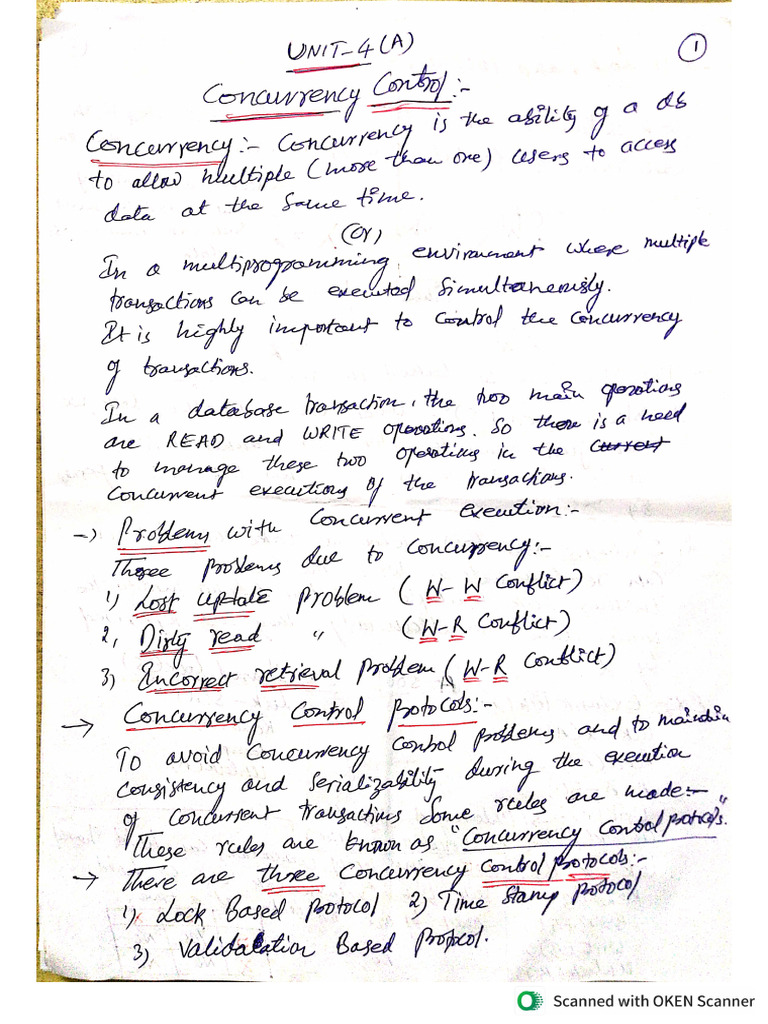 UNIT-4(A)
1
Concurrency Control:-
Concurrency:- Concurrency is the ability of a db
to allow multiple (more than one) users to access
data at the same time.
(or)
In a multiprogramming environment where multiple
transactions can be executed simultaneously.
It is highly important to control the concurrency
of transactions.
In a database transaction, the two main operations
are READ and WRITE operations. So there is a need
to manage these two operations in the current
concurrent executions of the transactions.
-> Problems with concurrent execution:-
Three problems due to concurrency:-
1) Lost update problem (W-W conflict)
2, Dirty read " (W-R conflict)
3) Incorrect retrieval problem (W-R conflict)
-> Concurrency Control Protocols:-
To avoid concurrency control problems and to maintain
consistency and serializability during the execution
of concurrent transactions some rules are made:-
These rules are known as "Concurrency Control protocols."
-> There are three concurrency control protocols:-
1) Lock Based protocol 2) Time Stamp protocol
3) Validation Based Protocol.
Scanned with OKEN Scanner